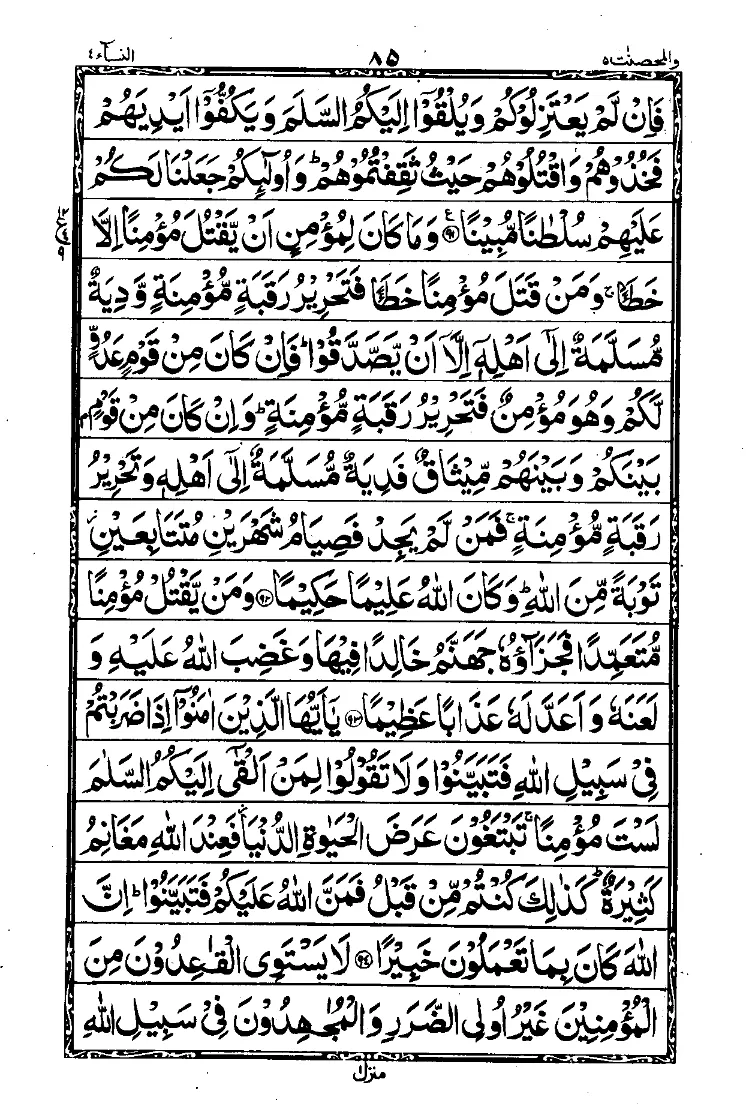 والمحصنٰت ٥ ٨٥ النسآء ٤
فَاِنْ لَّمْ يَعْتَزِلُوْكُمْ وَيُلْقُوْٓا اِلَيْكُمُ السَّلَمَ وَيَكُفُّوْٓا اَيْدِيَهُمْ
فَخُذُوْهُمْ وَاقْتُلُوْهُمْ حَيْثُ ثَقِفْتُمُوْهُمْ ؕ وَاُولٰٓئِكُمْ جَعَلْنَا لَكُمْ
عَلَيْهِمْ سُلْطٰنًا مُّبِيْنًا ﴿۹۱﴾ ع وَمَا كَانَ لِمُؤْمِنٍ اَنْ يَّقْتُلَ مُؤْمِنًا اِلَّا
خَطَـًٔا ۚ وَمَنْ قَتَلَ مُؤْمِنًا خَطَـًٔا فَتَحْرِيْرُ رَقَبَةٍ مُّؤْمِنَةٍ وَّدِيَةٌ
مُّسَلَّمَةٌ اِلٰٓى اَهْلِهٖٓ اِلَّآ اَنْ يَّصَّدَّقُوْا ؕ فَاِنْ كَانَ مِنْ قَوْمٍ عَدُوٍّ
لَّكُمْ وَهُوَ مُؤْمِنٌ فَتَحْرِيْرُ رَقَبَةٍ مُّؤْمِنَةٍ ؕ وَاِنْ كَانَ مِنْ قَوْمٍۭ
بَيْنَكُمْ وَبَيْنَهُمْ مِّيْثَاقٌ فَدِيَةٌ مُّسَلَّمَةٌ اِلٰٓى اَهْلِهٖ وَتَحْرِيْرُ
رَقَبَةٍ مُّؤْمِنَةٍ ۚ فَمَنْ لَّمْ يَجِدْ فَصِيَامُ شَهْرَيْنِ مُتَتَابِعَيْنِ ؗ
تَوْبَةً مِّنَ اللّٰهِ ؕ وَكَانَ اللّٰهُ عَلِيْمًا حَكِيْمًا ﴿۹۲﴾ وَمَنْ يَّقْتُلْ مُؤْمِنًا
مُّتَعَمِّدًا فَجَزَآؤُهٗ جَهَنَّمُ خَالِدًا فِيْهَا وَغَضِبَ اللّٰهُ عَلَيْهِ وَ
لَعَنَهٗ وَاَعَدَّ لَهٗ عَذَابًا عَظِيْمًا ﴿۹۳﴾ يٰٓاَيُّهَا الَّذِيْنَ اٰمَنُوْٓا اِذَا ضَرَبْتُمْ
فِيْ سَبِيْلِ اللّٰهِ فَتَبَيَّنُوْا وَلَا تَقُوْلُوْا لِمَنْ اَلْقٰٓى اِلَيْكُمُ السَّلٰمَ
لَسْتَ مُؤْمِنًا ۚ تَبْتَغُوْنَ عَرَضَ الْحَيٰوةِ الدُّنْيَا ؗ فَعِنْدَ اللّٰهِ مَغَانِمُ
كَثِيْرَةٌ ؕ كَذٰلِكَ كُنْتُمْ مِّنْ قَبْلُ فَمَنَّ اللّٰهُ عَلَيْكُمْ فَتَبَيَّنُوْا ؕ اِنَّ
اللّٰهَ كَانَ بِمَا تَعْمَلُوْنَ خَبِيْرًا ﴿۹۴﴾ لَا يَسْتَوِى الْقٰعِدُوْنَ مِنَ
الْمُؤْمِنِيْنَ غَيْرُ اُولِى الضَّرَرِ وَالْمُجٰهِدُوْنَ فِيْ سَبِيْلِ اللّٰهِ
منزل